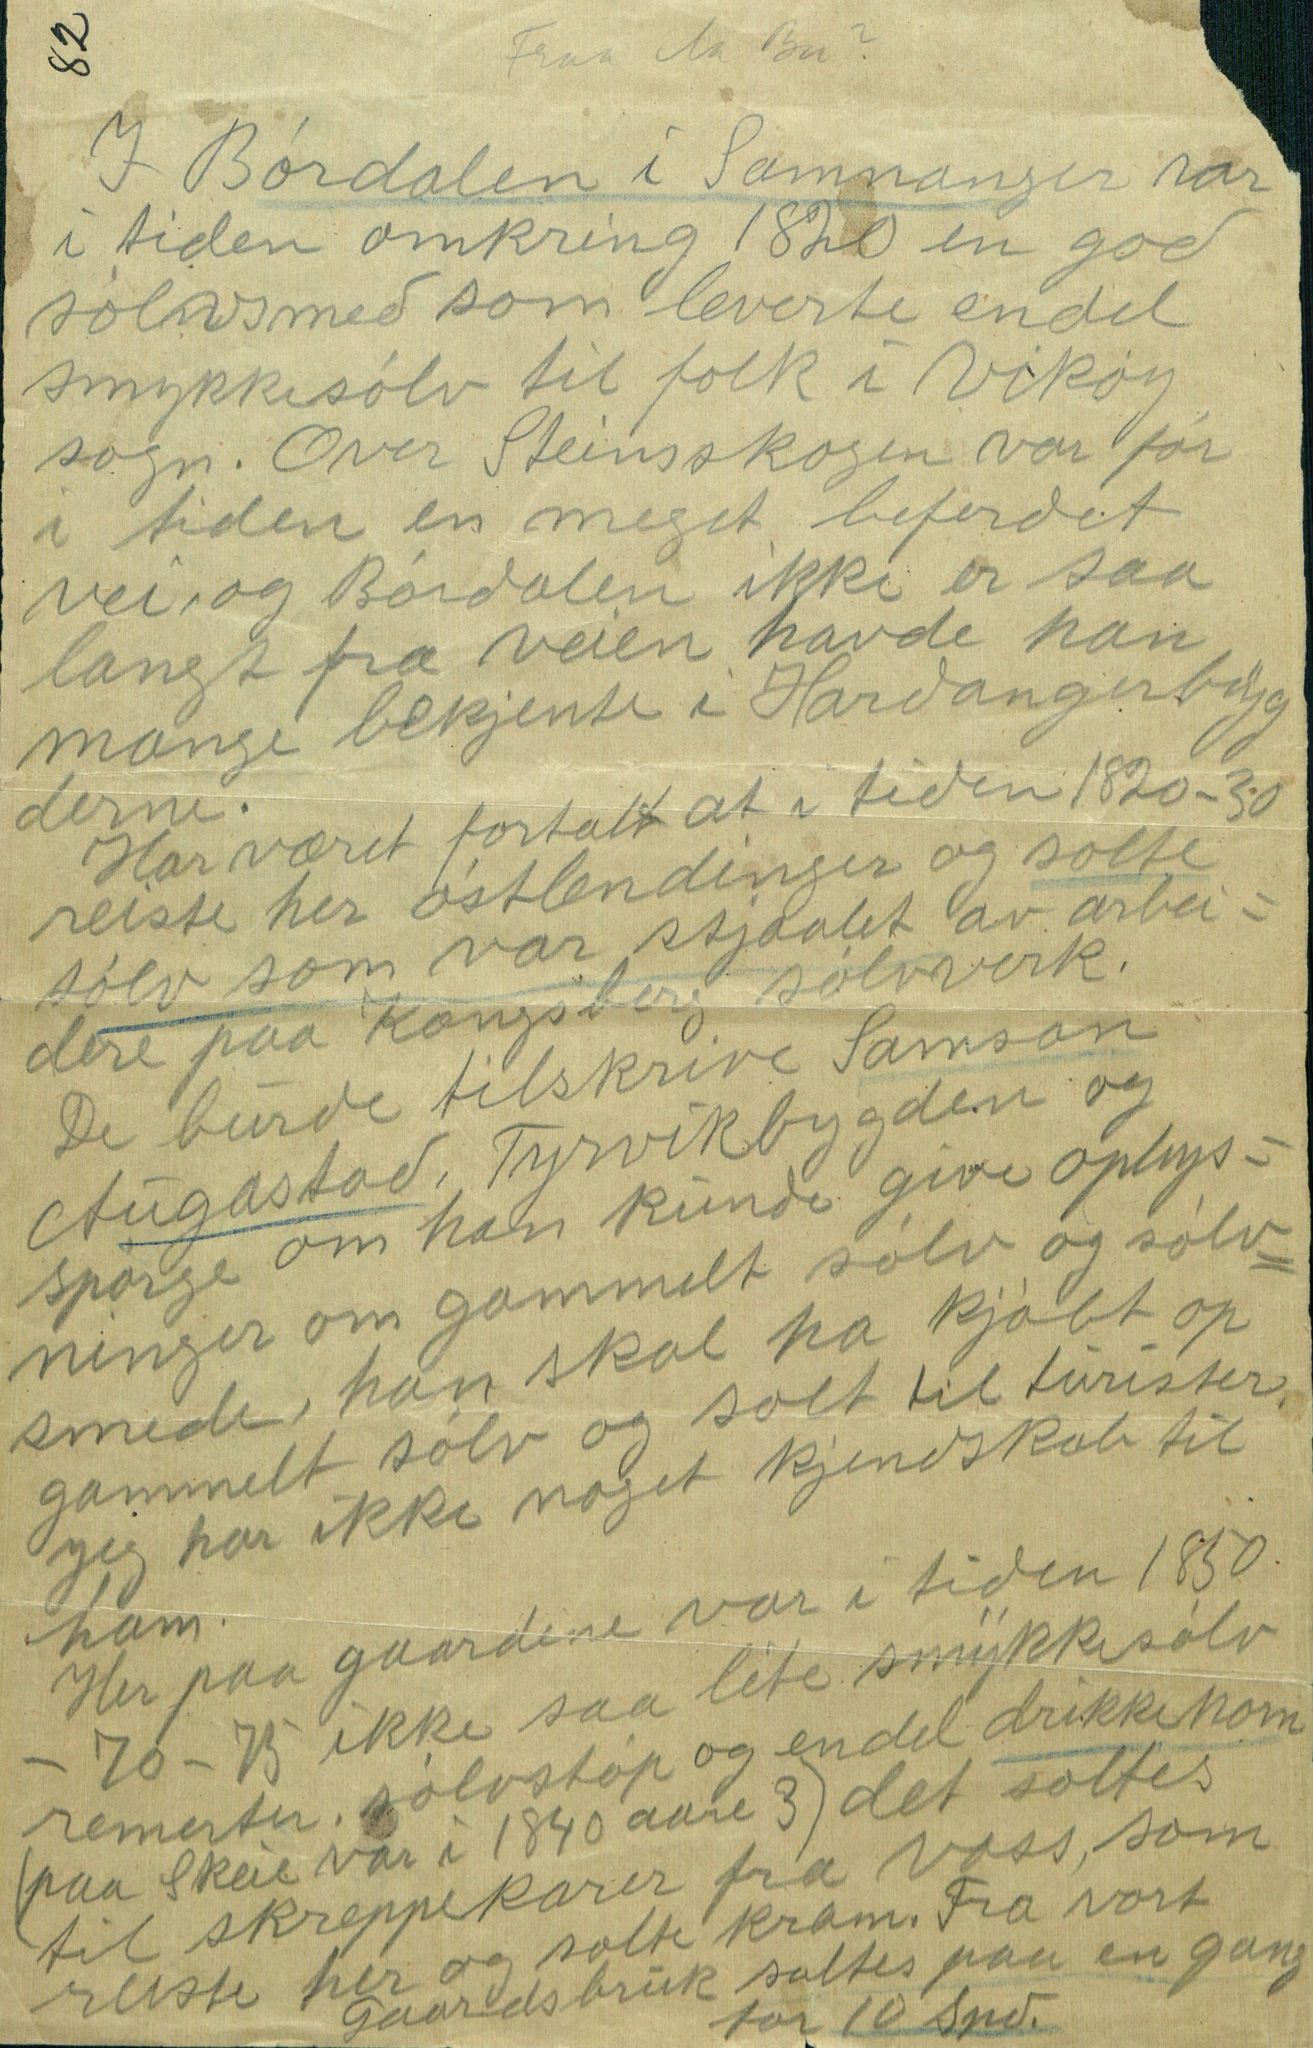 82
Fraa Aa Bu?
I Bórdalen i Samnanger var
i tiden omkring 1820 en god
sólvsmed som leverte endel
smykkesólv til folk i Vikóy
sogn. Over Steinsskogen var fór
i tiden en meget beferdet
vei, og Bórdalen ikke er saa
langt fra veien havde han
mange bekjente i Hardangerbyg
derne.
Har været fortalt at i tiden 1820-30
reiste her óstlendinger og solte
sólv som var stjaalet av arbei=
dere paa Kongsberg sólvverk.
De burde tilskrive Samson
Augastad, Tyrvikbygden og
spórge om han kunde give oplys=
ninger om gammelt sólv og sólv=
smede, han skal ha kjóbt op
gammelt sólv og solt til turister.
jeg har ikke noget kjendskab til
ham.
Her paa gaardene var i tiden 1850
- 70 - 75 ikke saa lite smykkesólv
remerter. sólvstóp og endel drikkehorn
(paa Skeie var i 1840 aare 3) det soltes
til skreppekarer fra voss, som
reiste her og solte kram. Fra vort
Gaardsbruk soltes paa en gang
for 10 Spd.